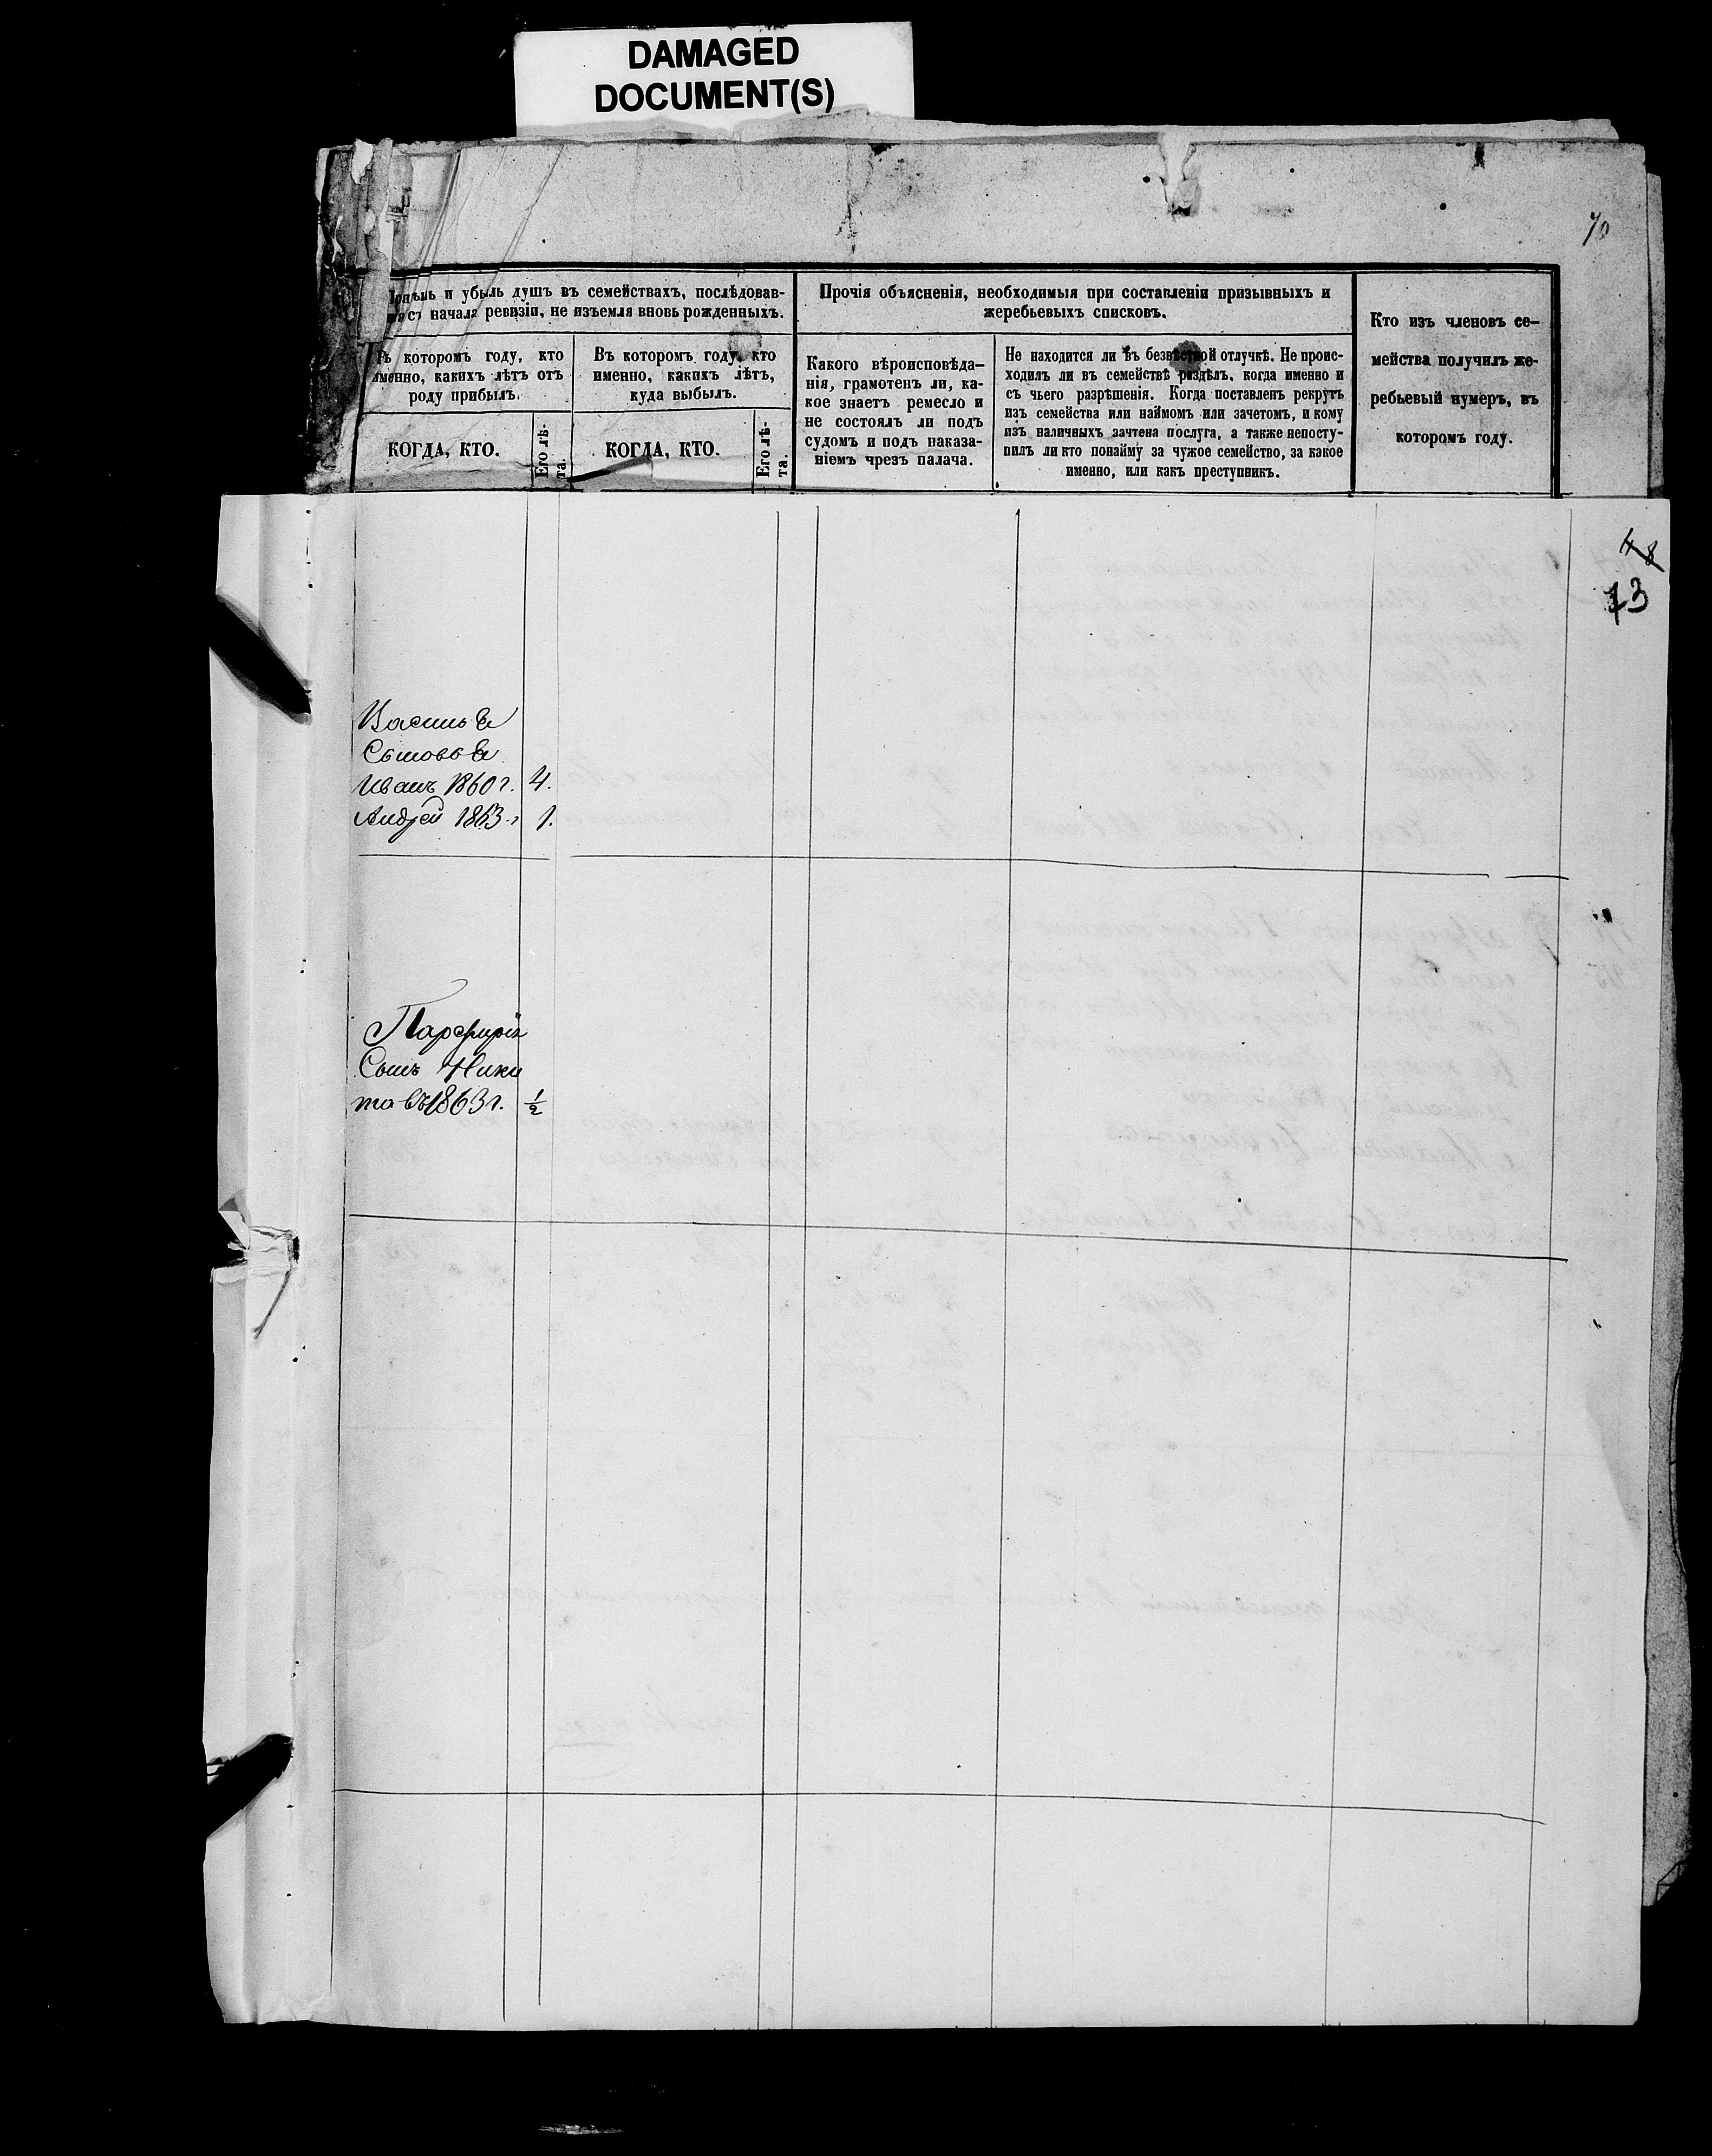 DAMAGED
DOCUMENT(S)
70
и убыль душъ въ семействахъ, послѣдовав-
съ начала ревизіи, не изъемля вновь рожденныхъ.
Въ которомъ году, кто
именно, какихъ лѣтъ отъ
роду прибылъ.
КОГДА, КТО.
Его лѣ-
та.
Въ которомъ году, кто
именно, какихъ лѣтъ,
куда выбылъ.
КОГДА, КТО.
Его лѣ-
та.
Прочія объясненія, необходимыя при составленіи призывныхъ и
жеребьевыхъ списковъ.
Какого вѣроисповѣда-
нія, грамотенъ ли, ка-
кое знаетъ ремесло и
не состоялъ ли подъ
судомъ и подъ наказа-
ніемъ чрезъ палача.
Не находится ли въ безвѣстной отлучкѣ. Не проис-
ходилъ ли въ семействѣ раздѣлъ, когда именно и
съ чьего разрѣшенія. Когда поставленъ рекрутъ
изъ семейства или наймомъ или зачетомъ, и кому
изъ наличныхъ зачтена послуга, а также непосту-
пилъ ли кто понайму за чужое семейство, за какое
именно, или какъ преступникъ.
Кто изъ членовъ се-
мейства получилъ же-
ребьевый нумеръ, въ
которомъ году.
48
73
Василья
Сыновья
Иванъ 1860 г. 4.
Андрей 1863 г 1.
Парфирія
Сынъ Ники
та въ 1863 г. ½